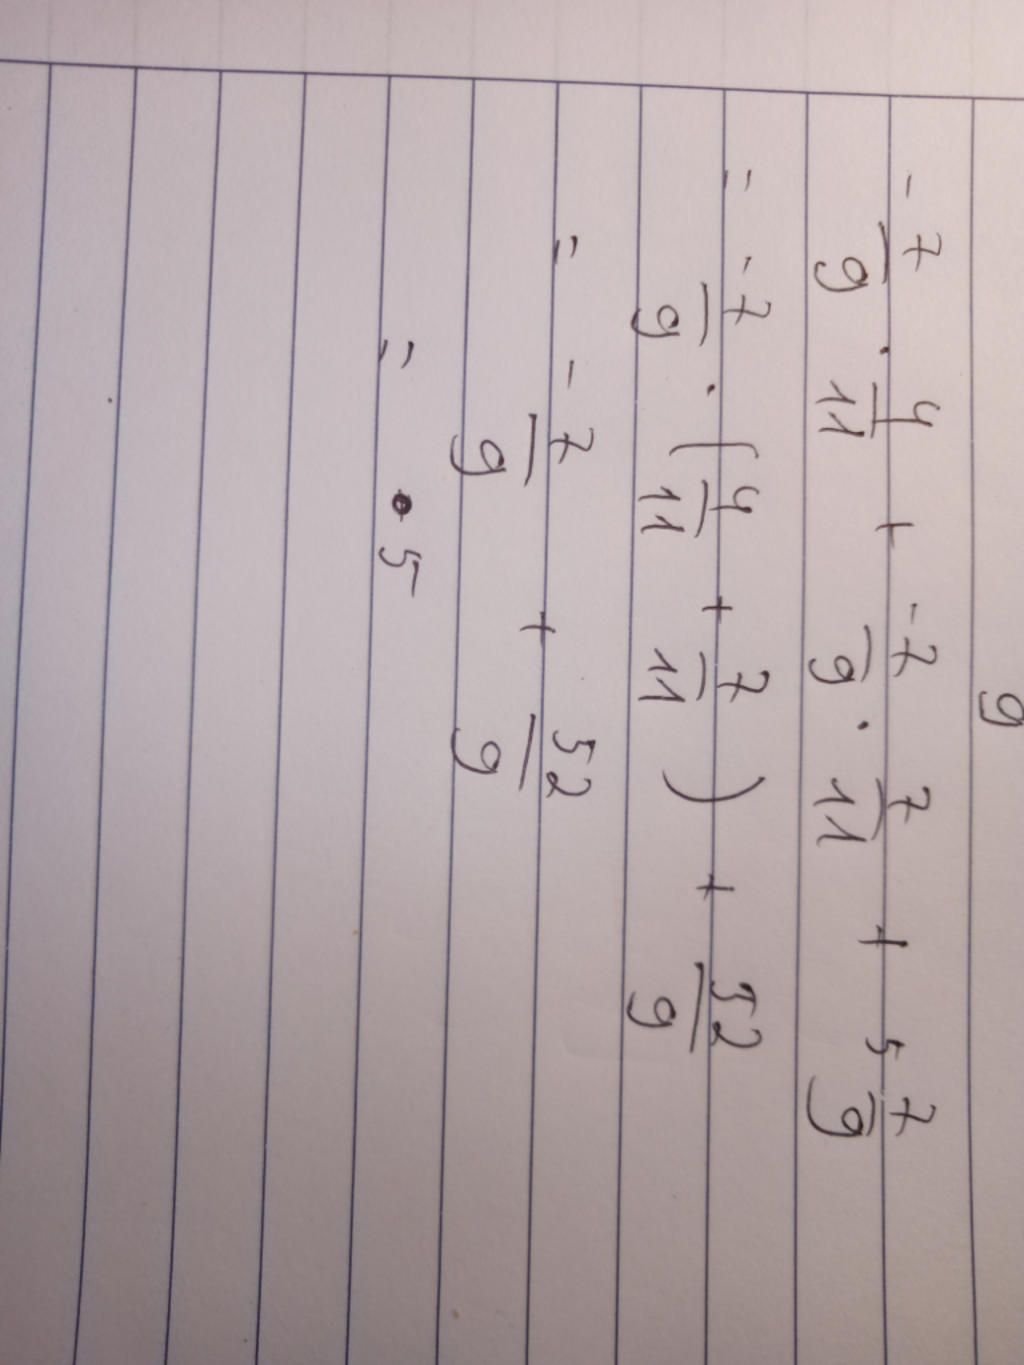 9
-7/9 · 4/11 + -7/9 · 7/11 + 5 7/9
= -7/9 · (4/11 + 7/11) + 52/9
= -7/9 + 52/9
= 5